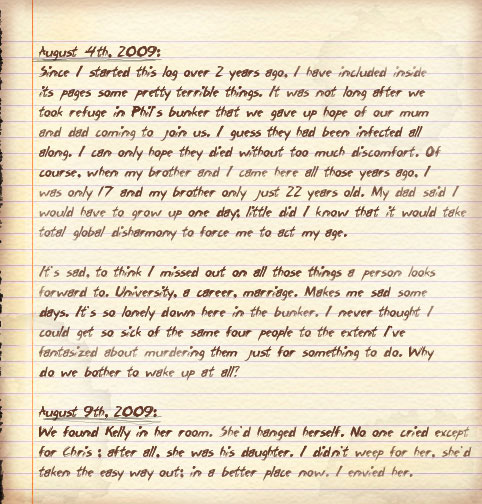 August 4th, 2009:
Since I started this log over 2 years ago, I have included inside
its pages some pretty terrible things. It was not long after we
took refuge in Phil's bunker that we gave up hope of our mum
and dad coming to join us. I guess they had been infected all
along. I can only hope they died without too much discomfort. Of
course, when my brother and I came here all those years ago, I
was only 17 and my brother only just 22 years old. My dad said I
would have to grow up one day, little did I know that it would take
total global disharmony to force me to act my age.
It's sad, to think I missed out on all those things a person looks
forward to. University, a career, marriage. Makes me sad some
days. It's so lonely down here in the bunker. I never thought I
could get so sick of the same four people to the extent I've
fantasized about murdering them just for something to do. Why
do we bother to wake up at all?
August 9th, 2009:
We found Kelly in her room. She'd hanged herself. No one cried except
for Chris ; after all, she was his daughter. I didn't weep for her, she'd
taken the easy way out; in a better place now. I envied her.